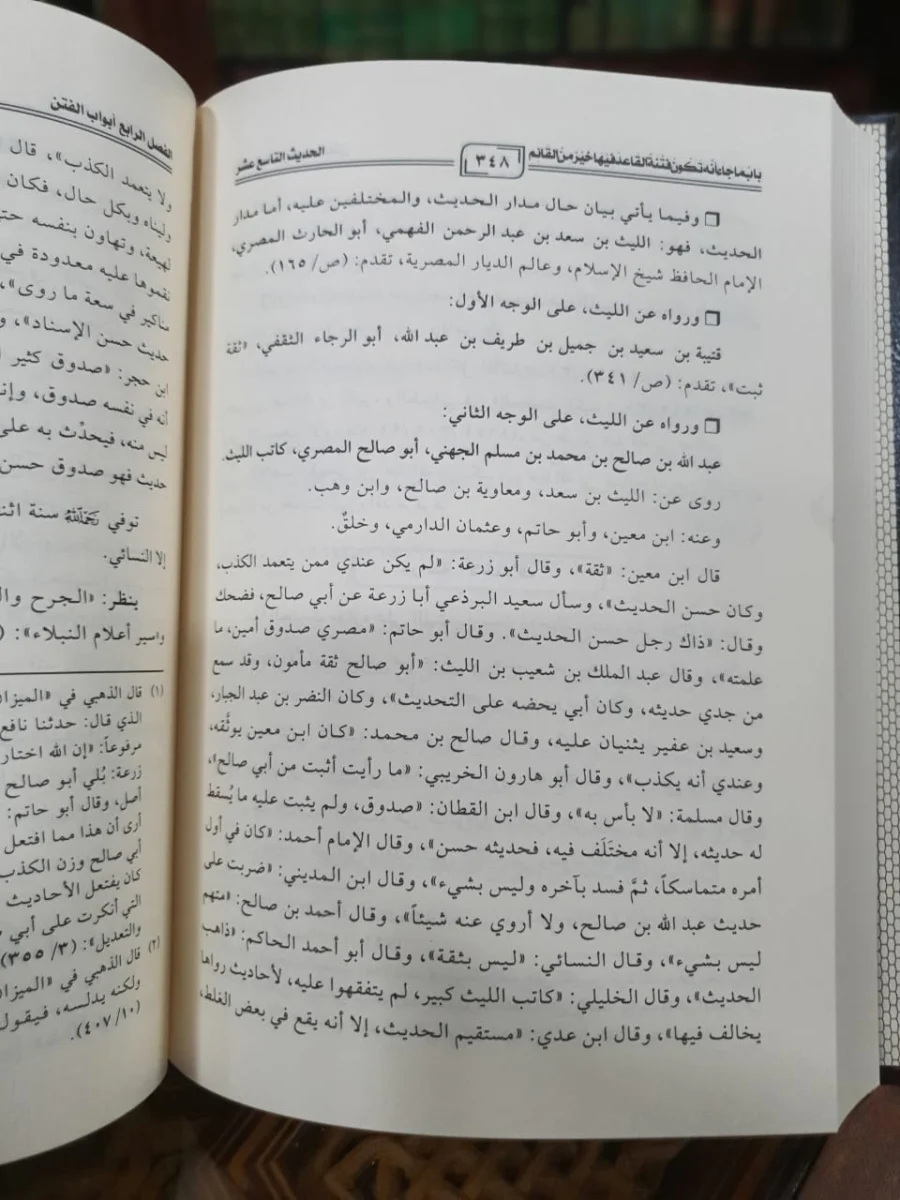 باب ما جاء أنه تكون فتنة القاعد فيها خير من القائم
٣٤٨
الحديث التاسع عشر
❒ وفيما يأتي بيان حال مدار الحديث، والمختلفين عليه، أما مدار
الحديث، فهو: الليث بن سعد بن عبد الرحمن الفهمي، أبو الحارث المصري،
الإمام الحافظ شيخ الإسلام، وعالم الديار المصرية، تقدم: (ص/ ١٦٥).
❒ ورواه عن الليث، على الوجه الأول:
قتيبة بن سعيد بن جميل بن طريف بن عبد الله، أبو الرجاء الثقفي، «ثقة
ثبت»، تقدم: (ص/ ٣٤١).
❒ ورواه عن الليث، على الوجه الثاني:
عبد الله بن صالح بن محمد بن مسلم الجهني، أبو صالح المصري، كاتب الليث.
روى عن: الليث بن سعد، ومعاوية بن صالح، وابن وهب.
وعنه: ابن معين، وأبو حاتم، وعثمان الدارمي، وخلقٌ.
قال ابن معين: «ثقة»، وقال أبو زرعة: «لم يكن عندي ممن يتعمد الكذب،
وكان حسن الحديث»، وسأل سعيد البرذعي أبا زرعة عن أبي صالح، فضحك
وقال: «ذاك رجل حسن الحديث». وقال أبو حاتم: «مصري صدوق أمين، ما
علمته»، وقال عبد الملك بن شعيب بن الليث: «أبو صالح ثقة مأمون، وقد سمع
من جدي حديثه، وكان أبي يحضه على التحديث»، وكان النضر بن عبد الجبار،
وسعيد بن عفير يثنيان عليه، وقال صالح بن محمد: «كان ابن معين يوثَّقه،
وعندي أنه يكذب»، وقال أبو هارون الخريبي: «ما رأيت أثبت من أبي صالح»،
وقال مسلمة: «لا بأس به»، وقال ابن القطان: «صدوق، ولم يثبت عليه ما يُسقط
له حديثه، إلا أنه مختَلَف فيه، فحديثه حسن»، وقال الإمام أحمد: «كان في أول
أمره متماسكاً، ثمَّ فسد بآخره وليس بشيء»، وقال ابن المديني: «ضربت على
حديث عبد الله بن صالح، ولا أروي عنه شيئاً»، وقال أحمد بن صالح: «متهم
ليس بشيء»، وقال النسائي: «ليس بثقة»، وقال أبو أحمد الحاكم: «ذاهب
الحديث»، وقال الخليلي: «كاتب الليث كبير، لم يتفقهوا عليه، لأحاديث رواها
يخالف فيها»، وقال ابن عدي: «مستقيم الحديث، إلا أنه يقع في بعض الغلط،
الفصل الرابع أبواب الفتن
ولا يتعمد الكذب»، قال
وليناه وبكل حال، فكان
لهيعة، وتهاون بنفسه حتى
نقموها عليه معدودة في
مناكير في سعة ما روى»،
حديث حسن الإسناد»، و
ابن حجر: «صدوق كثير
أنه في نفسه صدوق، وإنـ
ليس منه، فيحدِّث به على
حديث فهو صدوق حسن
توفي رَحِمَهُ اللَّهُ سنة اثنـ
إلا النسائي.
ينظر: «الجرح والـ
و«سير أعلام النبلاء»: (
(١) قال الذهبي في «الميزان
الذي قال: حدثنا نافع
مرفوعاً: «إن الله اختار
زرعة: بُلي أبو صالح
أصل، وقال أبو حاتم:
أرى أن هذا مما افتعل
أبي صالح وزن الكذب
كان يفتعل الأحاديث
التي أنكرت على أبي
والتعديل»: (٣/ ٣٥٥)
(٢) قال الذهبي في «الميزان
ولكنه يدلسه، فيقول
(١٠/ ٤٠٧).